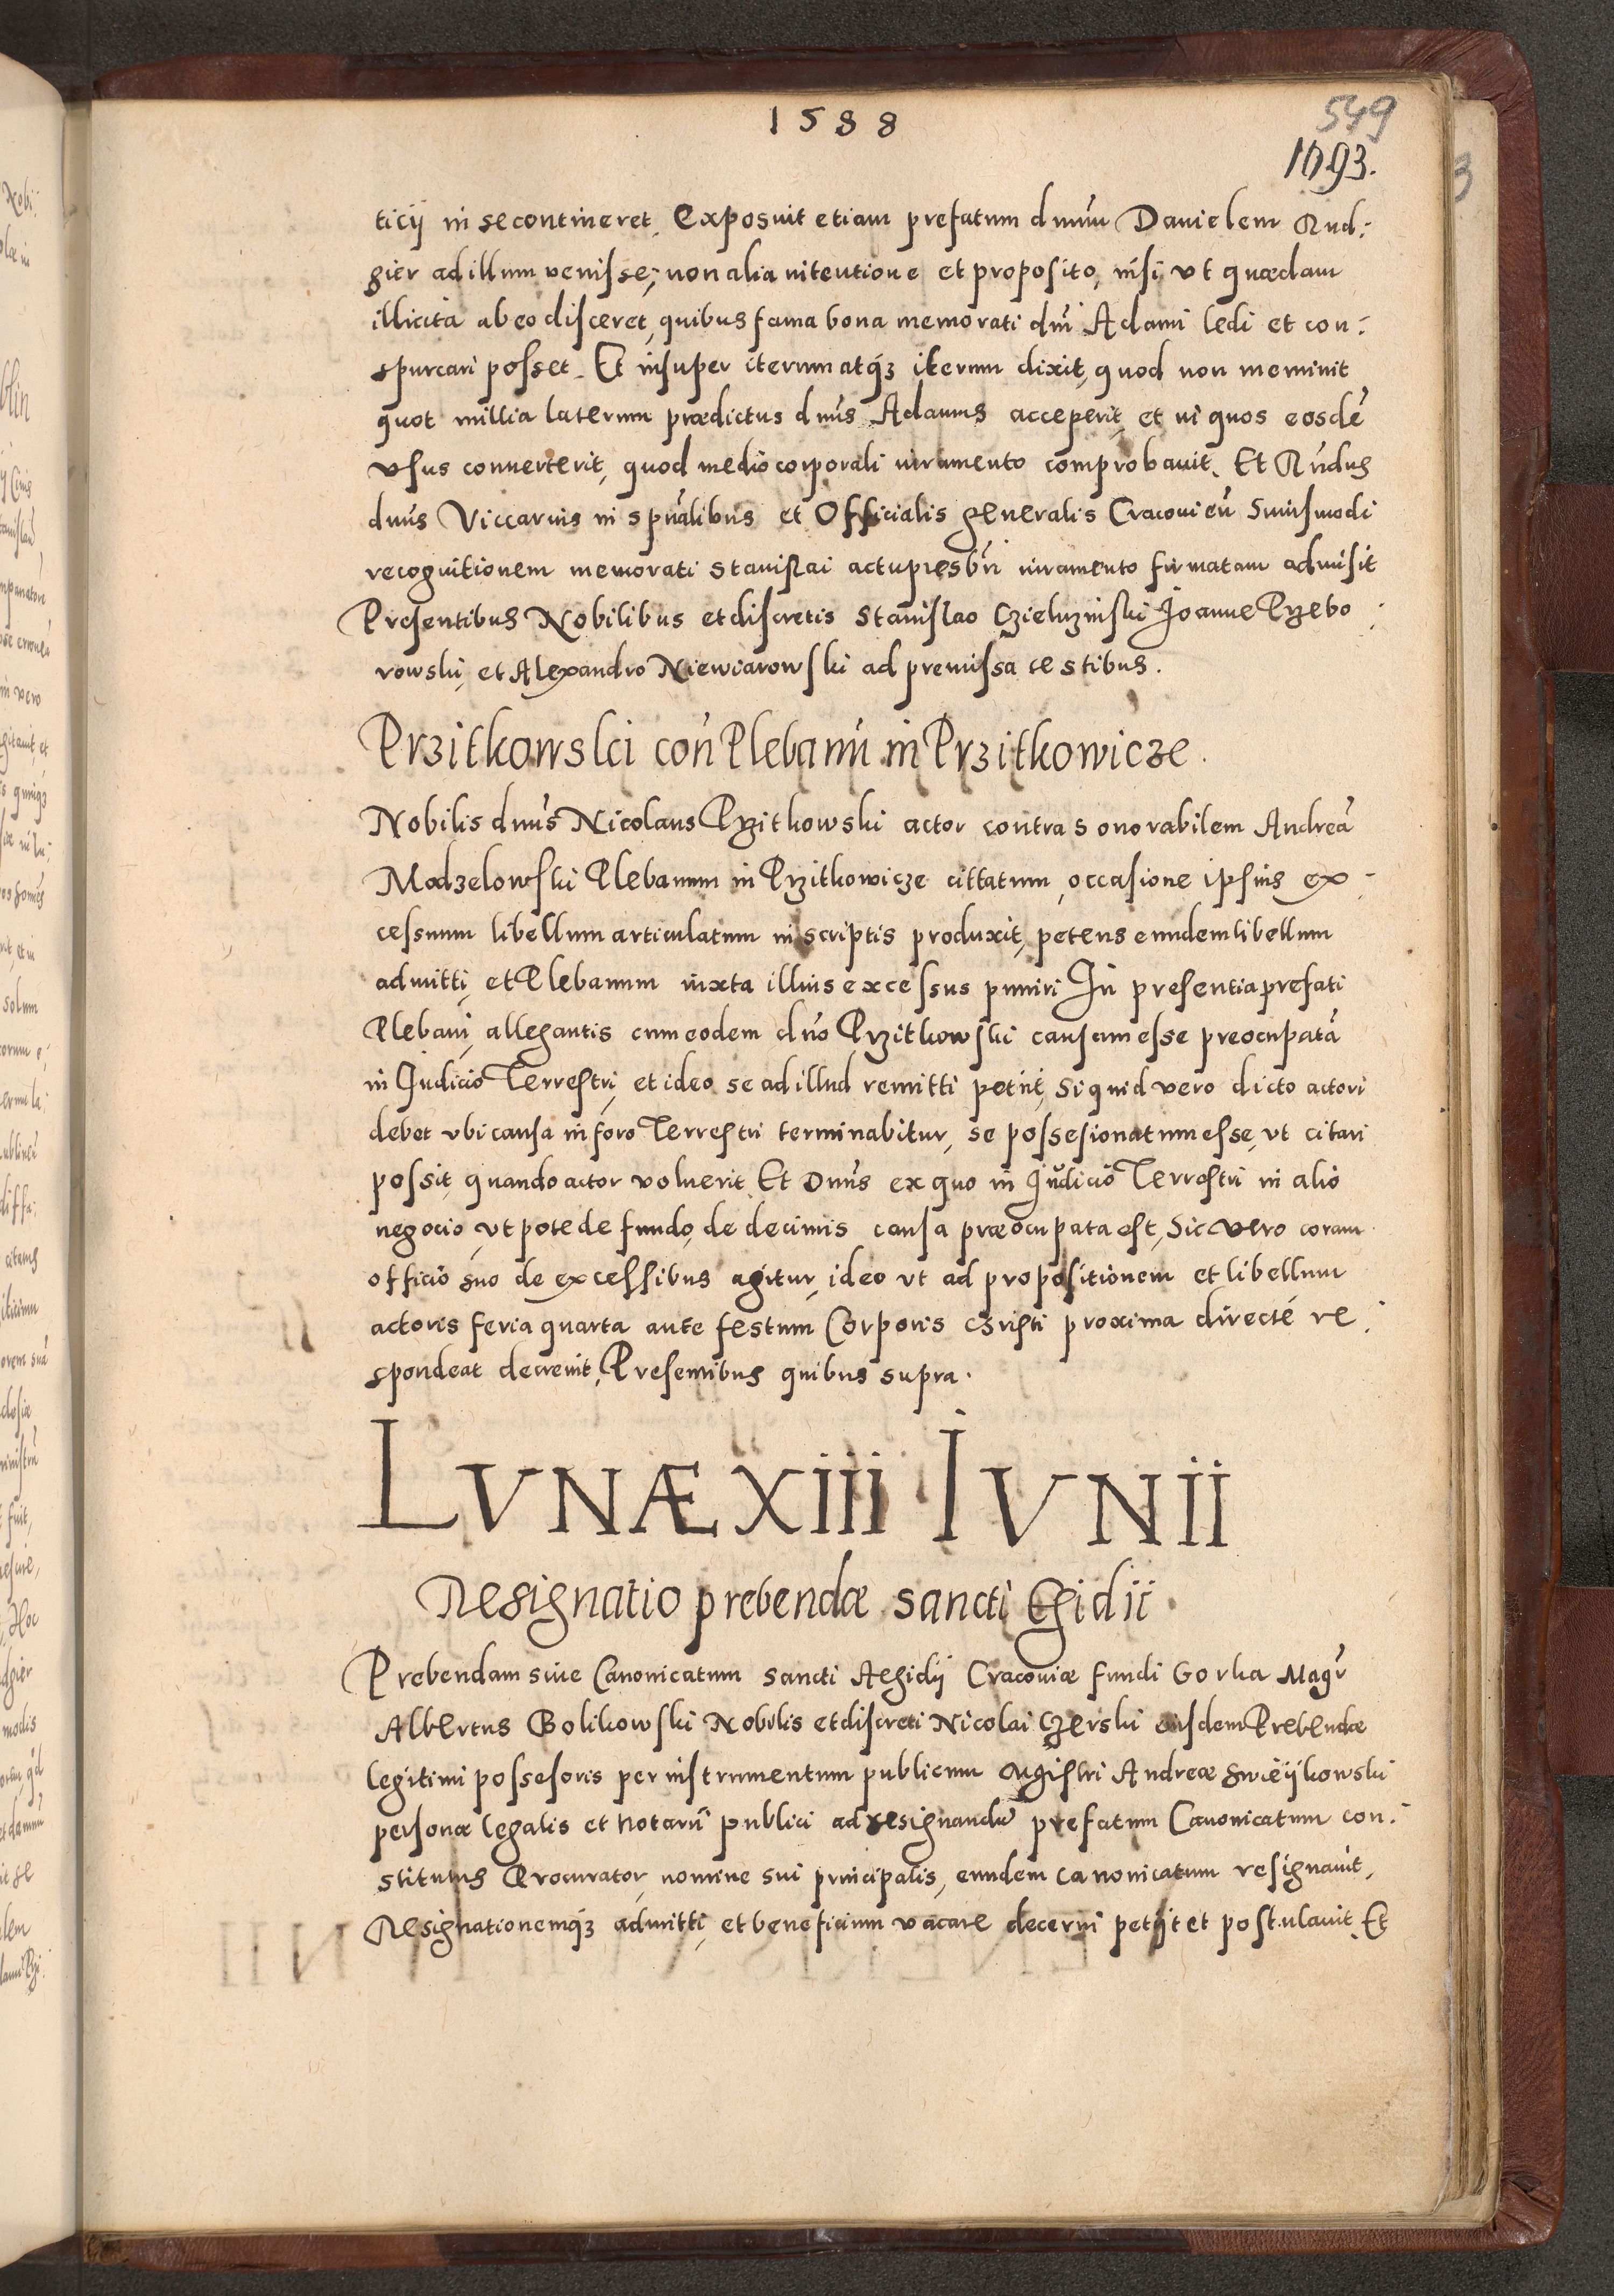 1588
549
1093.
ticÿ in se contineret. Exposuit etiam prefatum dnūm Danielem Rud:
gier ad illum venisse, non alia intentione et proposito, nisi vt quædam
illicita ab eo disceret, quibus fama bona memorati dnī Adami ledi et con:
spurcari posset. Et insuper iterum atq́ꝫ iterum dixit, quod non meminit
quot millia laterum prædictus dnūs Adamus acceperit, et in quos eosdē
vsus conuerterit, quod medio corporali iuramento comprobauit. Et Rn̄dus
dnūs Viccarius in spūalibus et Officialis generalis Cracouień huiusmodi
recognitionem memorati Stanislai actu presb̄ri iuramento firmatam admisit
Presentibus Nobilibus et discretis Stanislao Czieluzinski Joanne Przebo:
rowski, et Alexandro Niewiarowski ad premissa testibus.
Przitkowski con̄ Plebanū in Przitkowicze.
Nobilis dnūs Nicolaus Przitkowski actor contra honorabilem Andreā
Modzelowski Plebanum in Przitkowicze cittatum, occasione ipsius ex:
cessuum libellum articulatum in scriptis produxit, petens eundem libellum
admitti, et Plebanum iuxta illius excessus puniri In presentia prefati
Plebani, allegantis cum eodem dn̄o Przitkowski causam esse preocupatā
in Judicio Terrestri, et ideo se ad illud remitti petiit, Si quid vero dicto actori
debet vbi causa in foro Terrestri terminabitur, se possesionatum esse, vt citari
possit, quando actor voluerit. Et Dnūs ex quo in Judicio Terrestri in alio
negocio, vt pote de fundo, de decimis causa præocupata est, Sic vero coram
officio suo de excessibus agitur, ideo vt ad propositionem et libellum
actoris feria quarta ante festum Corporis Christi proxima directé re:
spondeat decreuit, Presentibus quibus supra.
LVNÆ XIII IVNII
Resignatio prebendæ sancti Egidii
Prebendam siue Canonicatum sancti Aegidÿ Cracouiæ fundi Gorka Magr̄
Albertus Bolikowski Nobilis et discreti Nicolai Czerski eiusdem Prebendæ
legitimi possesoris per instrumentum publicum Mgistri Andreæ Swieÿkowski
personæ legalis et Notarii publici ad resignandū prefatum Canonicatum con:
stitutus Procurator, nomine sui principalis, eundem canonicatum resignauit,
Resignationemq́ꝫ admitti, et beneficium vacare decerni petÿt et postulauit. Et